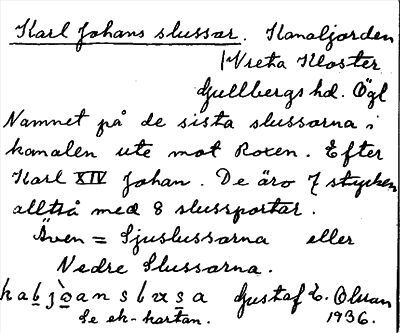 Karl Johans slussar. Kanaljorden
Vreta Kloster
Gullbergs hd. Ögl
Namnet på de sista slussarna i
kanalen ute mot Roxen. Efter
Karl XIV Johan. De äro 7 stycken
alltså med 8 slussportar.
Även = Sjuslussarna eller
Nedre Slussarna.
Gustaf E. Olsson
Se ek-kartan. 1936.